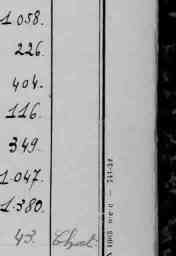 1.058.
226.
404.
116.
349.
1.047.
1.380.
43.